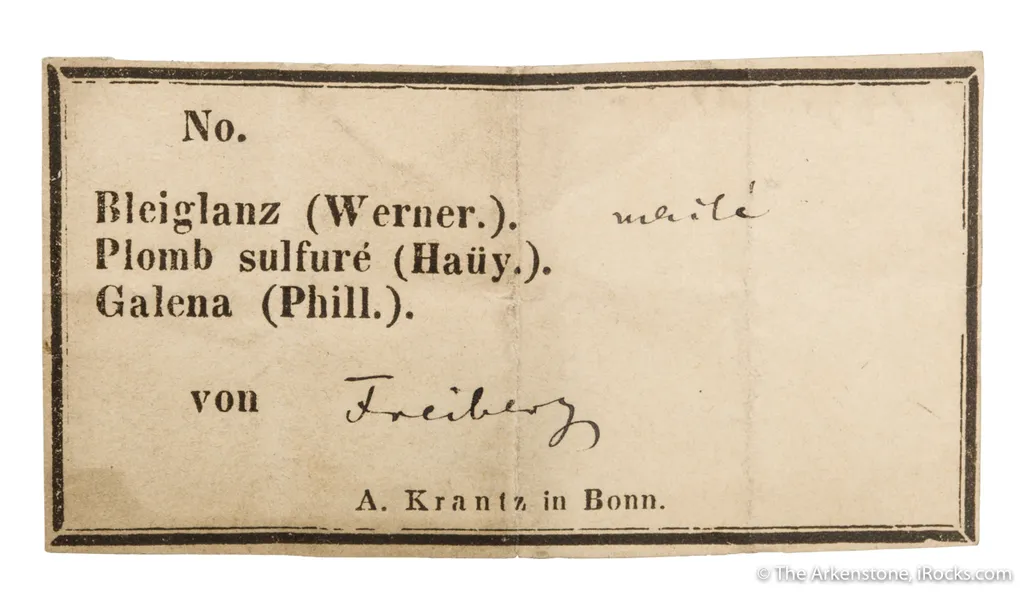 No.
Bleiglanz (Werner.).
Plomb sulfuré (Haüy.).
Galena (Phill.).
von Freiberg
A. Krantz in Bonn.
© The Arkenstone, iRocks.com